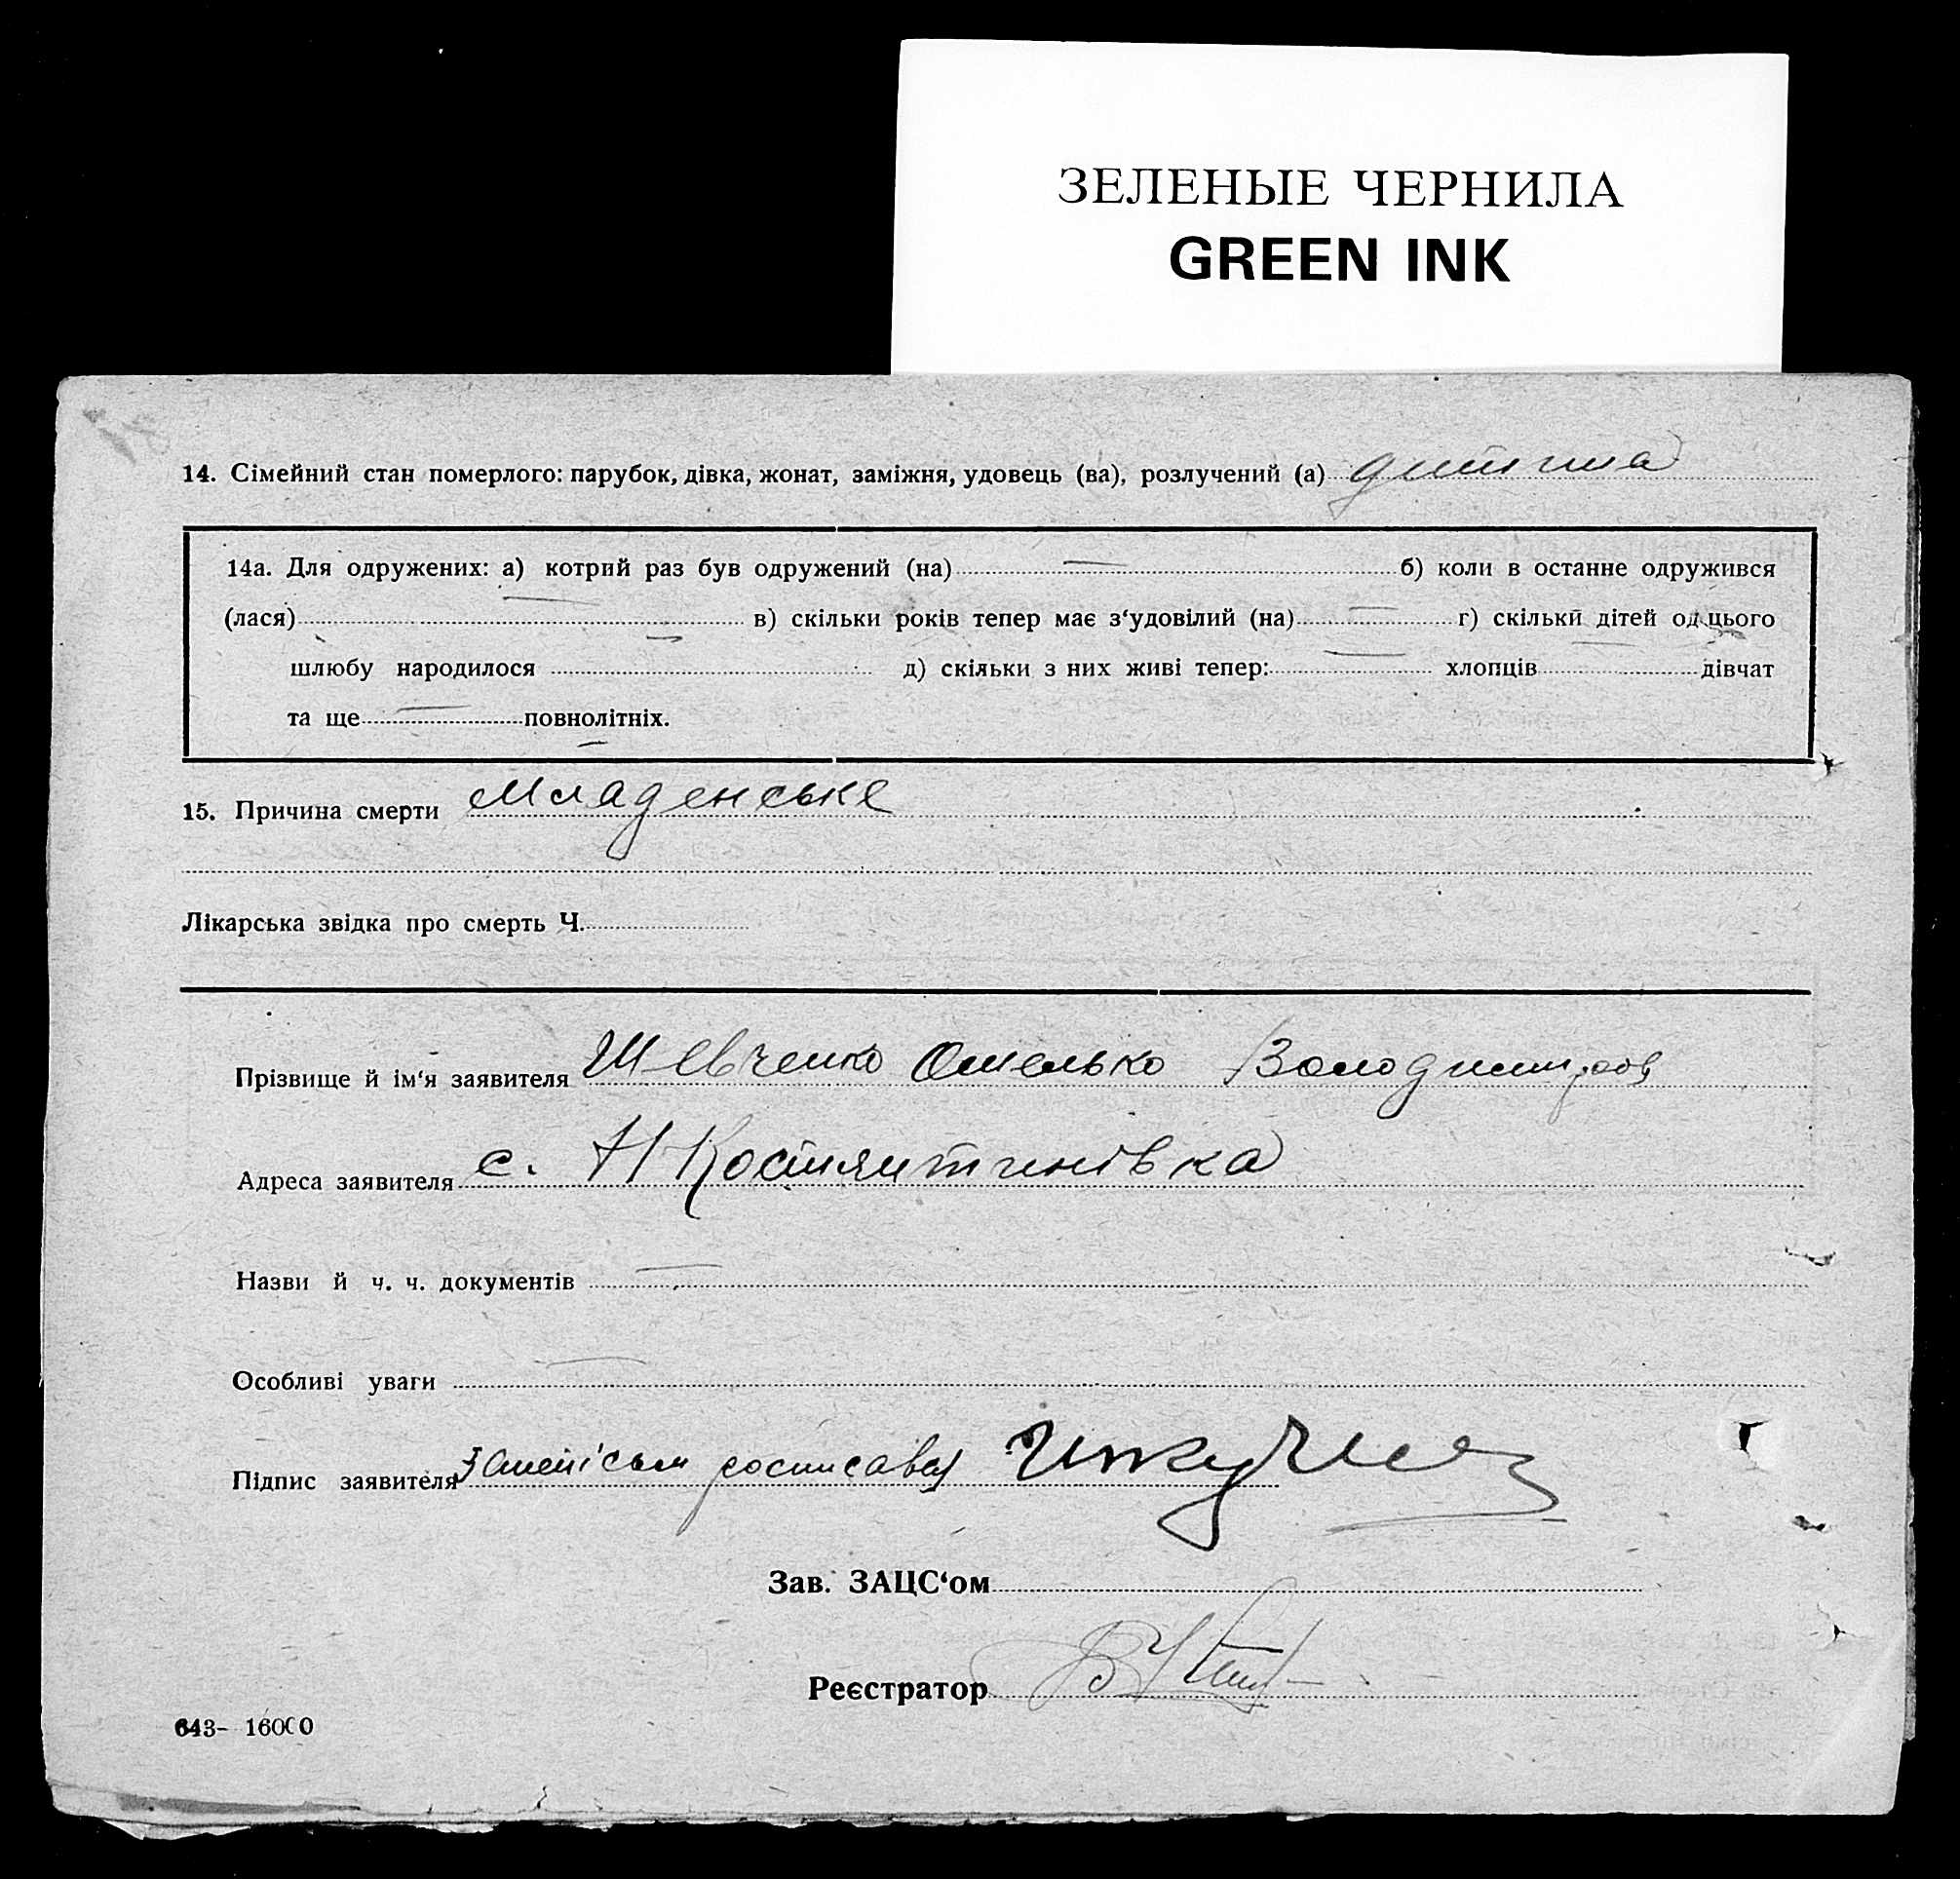 ЗЕЛЕНЫЕ ЧЕРНИЛА
GREEN INK
14. Сімейний стан померлого: парубок, дівка, жонат, заміжня, удовець (ва), розлучений (а) дитина
14а. Для одружених: а) котрий раз був одружений (на) — б) коли в останнє одружився
(лася) — в) скільки років тепер має з‘удовілий (на) — г) скільки дітей од цього
шлюбу народилося — д) скільки з них живі тепер: — хлопців — дівчат
та ще — повнолітніх.
15. Причина смерти Младенське
Лікарська звідка про смерть Ч.
Прізвище й ім‘я заявителя Шевченко Омелько Володимиров
Адреса заявителя с. Н Костянтинівка
Назви й ч. ч. документів —
Особливі уваги —
Підпис заявителя росписався
Зав. ЗАЦС‘ом
Реєстратор
643- 16000